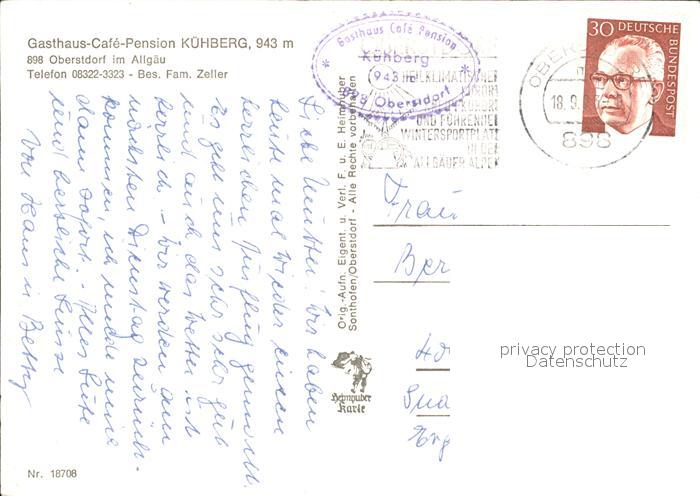 Gasthaus-Café-Pension KÜHBERG, 943 m
898 Oberstdorf im Allgäu
Telefon 08322-3323 - Bes. Fam. Zeller
Gasthaus Café Pension
Kühberg
943 m
898 Oberstdorf
HEILKLIMATISCHER
KURORT
UND FÜHRENDER
WINTERSPORTPLATZ
IN DEN
ALLGÄUER ALPEN
OBERS
18.9.
898
30 DEUTSCHE
BUNDESPOST
Liebe Mutter! Wir haben
heute mal wieder einen
herrlichen Ausflug gemacht.
Es geht uns sehr sehr gut
und auch das Wetter ist
herrlich. - Wir werden am
nächsten Dienstag zurück-
kommen, ich melde mich
dann sofort. - Alles Gute
und herzliche Grüsse
von Hans u. Betty
Orig.-Aufn. Eigent. u. Verl. F. u. E. Heimhuber
Sonthofen/Oberstdorf - Alle Rechte vorbehalten
Heimhuber
Karte
Frau
Ber
privacy protection
Datenschutz
Nr. 18708